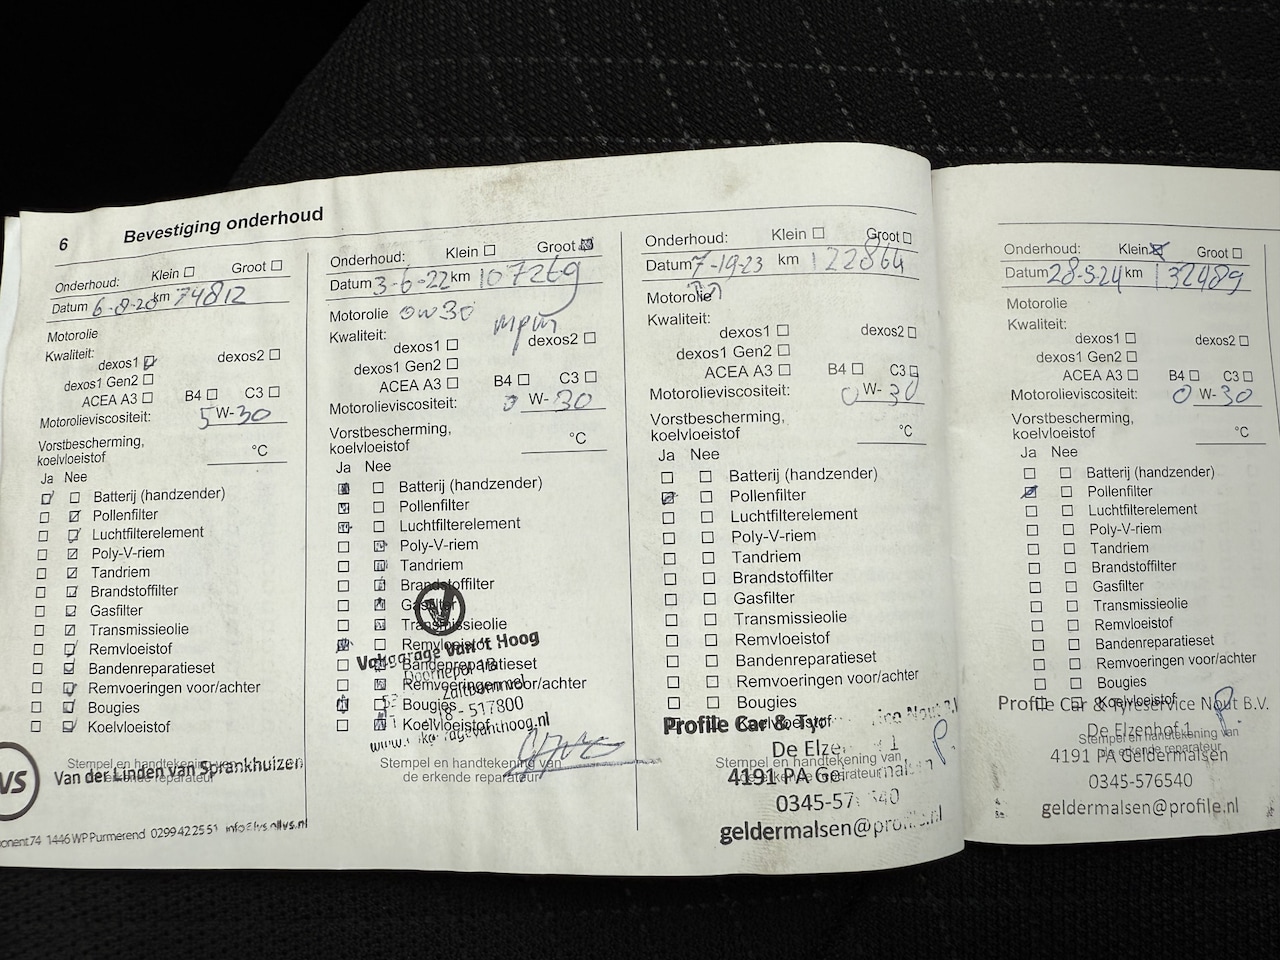 6 Bevestiging onderhoud
Onderhoud: Klein Groot
Datum 6-8-20 km 74812
Motorolie
Kwaliteit:
dexos1 dexos2
dexos1 Gen2
ACEA A3 B4 C3
Motorolieviscositeit: 5 W-30
Vorstbescherming,
koelvloeistof °C
Ja Nee
Batterij (handzender)
Pollenfilter
Luchtfilterelement
Poly-V-riem
Tandriem
Brandstoffilter
Gasfilter
Transmissieolie
Remvloeistof
Bandenreparatieset
Remvoeringen voor/achter
Bougies
Koelvloeistof
Stempel en handtekening van
de erkende reparateur
VS
Van der Linden van Sprankhuizen
74 1446 WP Purmerend 0299422551
Onderhoud: Klein Groot
Datum 3-6-22 km 107269
Motorolie 0W30 mpm
Kwaliteit:
dexos1 dexos2
dexos1 Gen2
ACEA A3 B4 C3
Motorolieviscositeit: 0 W-30
Vorstbescherming,
koelvloeistof °C
Ja Nee
Batterij (handzender)
Pollenfilter
Luchtfilterelement
Poly-V-riem
Tandriem
Brandstoffilter
Gasfilter
Transmissieolie
Remvloeistof
Vakgarage Van 't Hoog
Bandenreparatieset
Remvoeringen voor/achter
Zaltbommel
Bougies
517800
Koelvloeistof
Stempel en handtekening van
de erkende reparateur
Onderhoud: Klein Groot
Datum 7-19-23 km 122864
Motorolie
Kwaliteit:
dexos1 dexos2
dexos1 Gen2
ACEA A3 B4 C3
Motorolieviscositeit: 0 W-30
Vorstbescherming,
koelvloeistof °C
Ja Nee
Batterij (handzender)
Pollenfilter
Luchtfilterelement
Poly-V-riem
Tandriem
Brandstoffilter
Gasfilter
Transmissieolie
Remvloeistof
Bandenreparatieset
Remvoeringen voor/achter
Bougies
Koelvloeistof
Profile Car & Nout
De 1
Stempel en handtekening van
de erkende reparateur
4191 PA
0345-57 40
geldermalsen@profile.nl
Onderhoud: Klein Groot
Datum 28-524 km 132489
Motorolie
Kwaliteit:
dexos1 dexos2
dexos1 Gen2
ACEA A3 B4 C3
Motorolieviscositeit: 0 W-30
Vorstbescherming,
koelvloeistof °C
Ja Nee
Batterij (handzender)
Pollenfilter
Luchtfilterelement
Poly-V-riem
Tandriem
Brandstoffilter
Gasfilter
Transmissieolie
Remvloeistof
Bandenreparatieset
Remvoeringen voor/achter
Bougies
Koelvloeistof
Profile Car & Tyreservice Nout B.V.
De Elzenhof 1
Stempel en handtekening van
de erkende reparateur
4191 PA Geldermalsen
0345-576540
geldermalsen@profile.nl